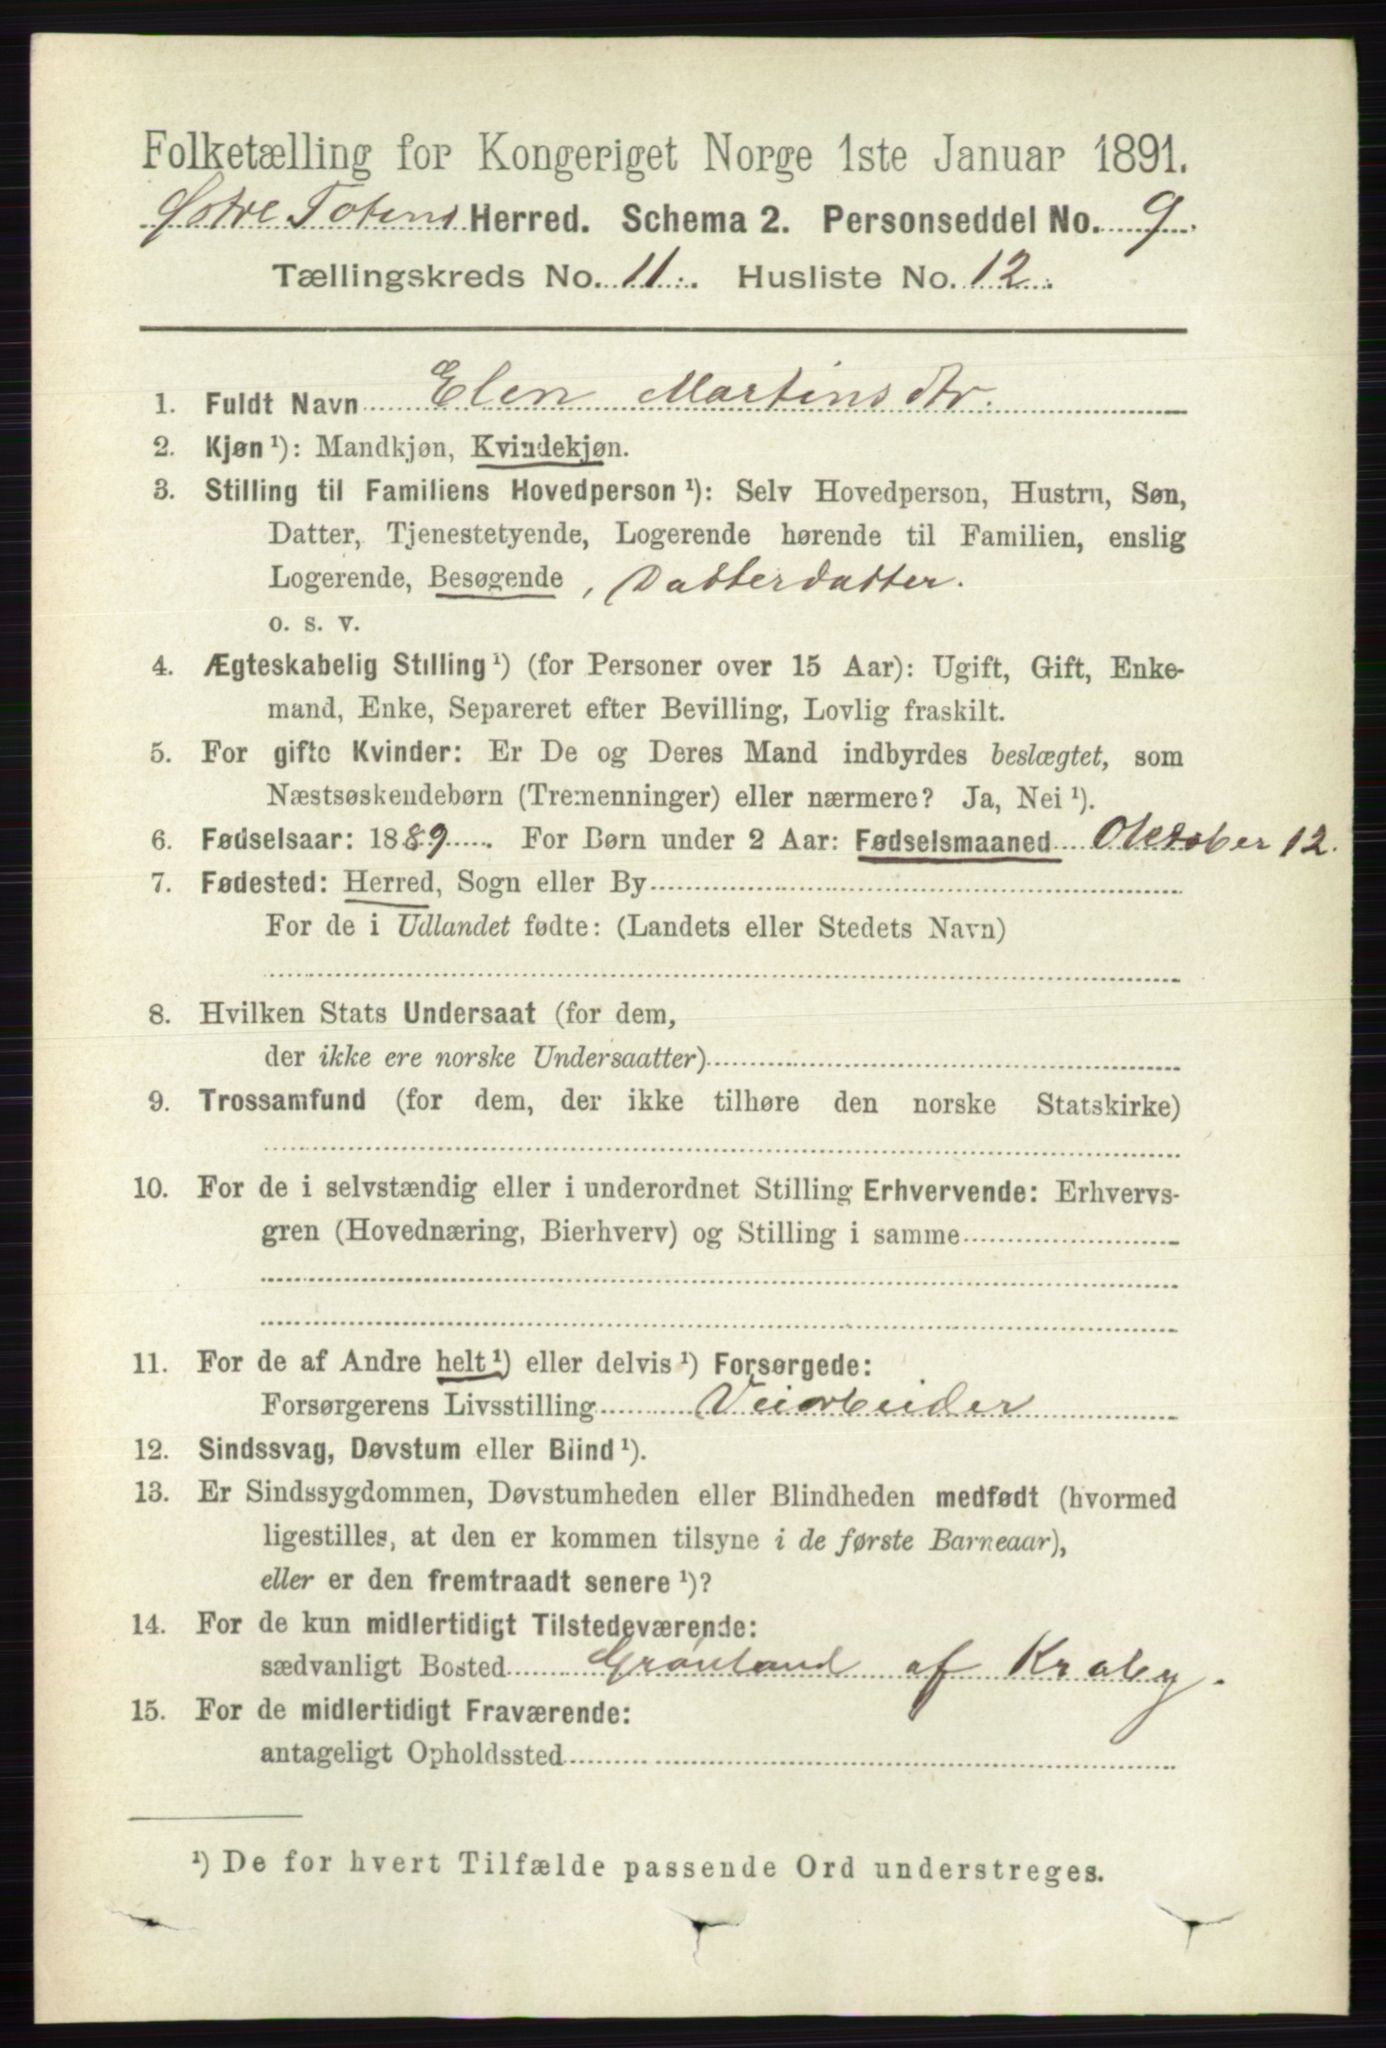 Folketælling for Kongeriget Norge 1ste Januar 1891.
Østre Totens Herred. Schema 2. Personseddel No. 9.
Tællingskreds No. 11. Husliste No. 12.
1. Fuldt Navn Elen Martinsdtr.
2. Kjøn ¹): Mandkjøn, Kvindekjøn.
3. Stilling til Familiens Hovedperson ¹): Selv Hovedperson, Hustru, Søn,
Datter, Tjenestetyende, Logerende hørende til Familien, enslig
Logerende, Besøgende, Datterdatter.
o. s. v.
4. Ægteskabelig Stilling ¹) (for Personer over 15 Aar): Ugift, Gift, Enke-
mand, Enke, Separeret efter Bevilling, Lovlig fraskilt.
5. For gifte Kvinder: Er De og Deres Mand indbyrdes beslægtet, som
Næstsøskendebørn (Tremenninger) eller nærmere? Ja, Nei ¹).
6. Fødselsaar: 1889. For Børn under 2 Aar: Fødselsmaaned Oktober 12.
7. Fødested: Herred, Sogn eller By
For de i Udlandet fødte: (Landets eller Stedets Navn)
8. Hvilken Stats Undersaat (for dem,
der ikke ere norske Undersaatter)
9. Trossamfund (for dem, der ikke tilhøre den norske Statskirke)
10. For de i selvstændig eller i underordnet Stilling Erhvervende: Erhvervs-
gren (Hovednæring, Bierhverv) og Stilling i samme
11. For de af Andre helt ¹) eller delvis ¹) Forsørgede:
Forsørgerens Livsstilling Veiarbeider
12. Sindssvag, Døvstum eller Blind ¹).
13. Er Sindssygdommen, Døvstumheden eller Blindheden medfødt (hvormed
ligestilles, at den er kommen tilsyne i de første Barneaar),
eller er den fremtraadt senere ¹)?
14. For de kun midlertidigt Tilstedeværende:
sædvanligt Bosted Grønland af Kraby.
15. For de midlertidigt Fraværende:
antageligt Opholdssted
¹) De for hvert Tilfælde passende Ord understreges.